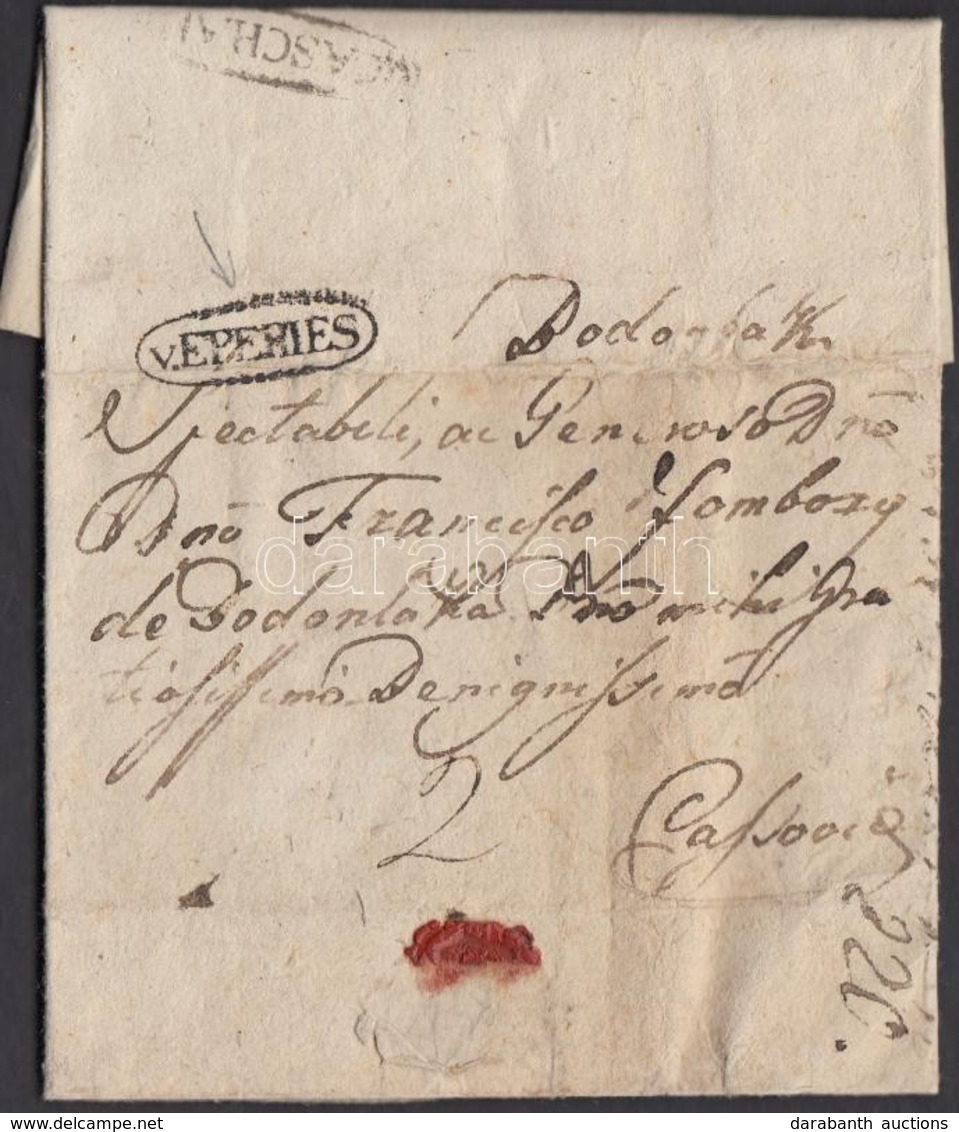 V. CASCHAU
v. EPERIES
Bodonlak.
Spectabili, ac Generoso Dnō
Dnō Francisco Zsombory
de Bodonlaka Dnō mihi Gra
tiosissimō Benignissimō
2
Cassoviæ
darabanth
darabanth auctions